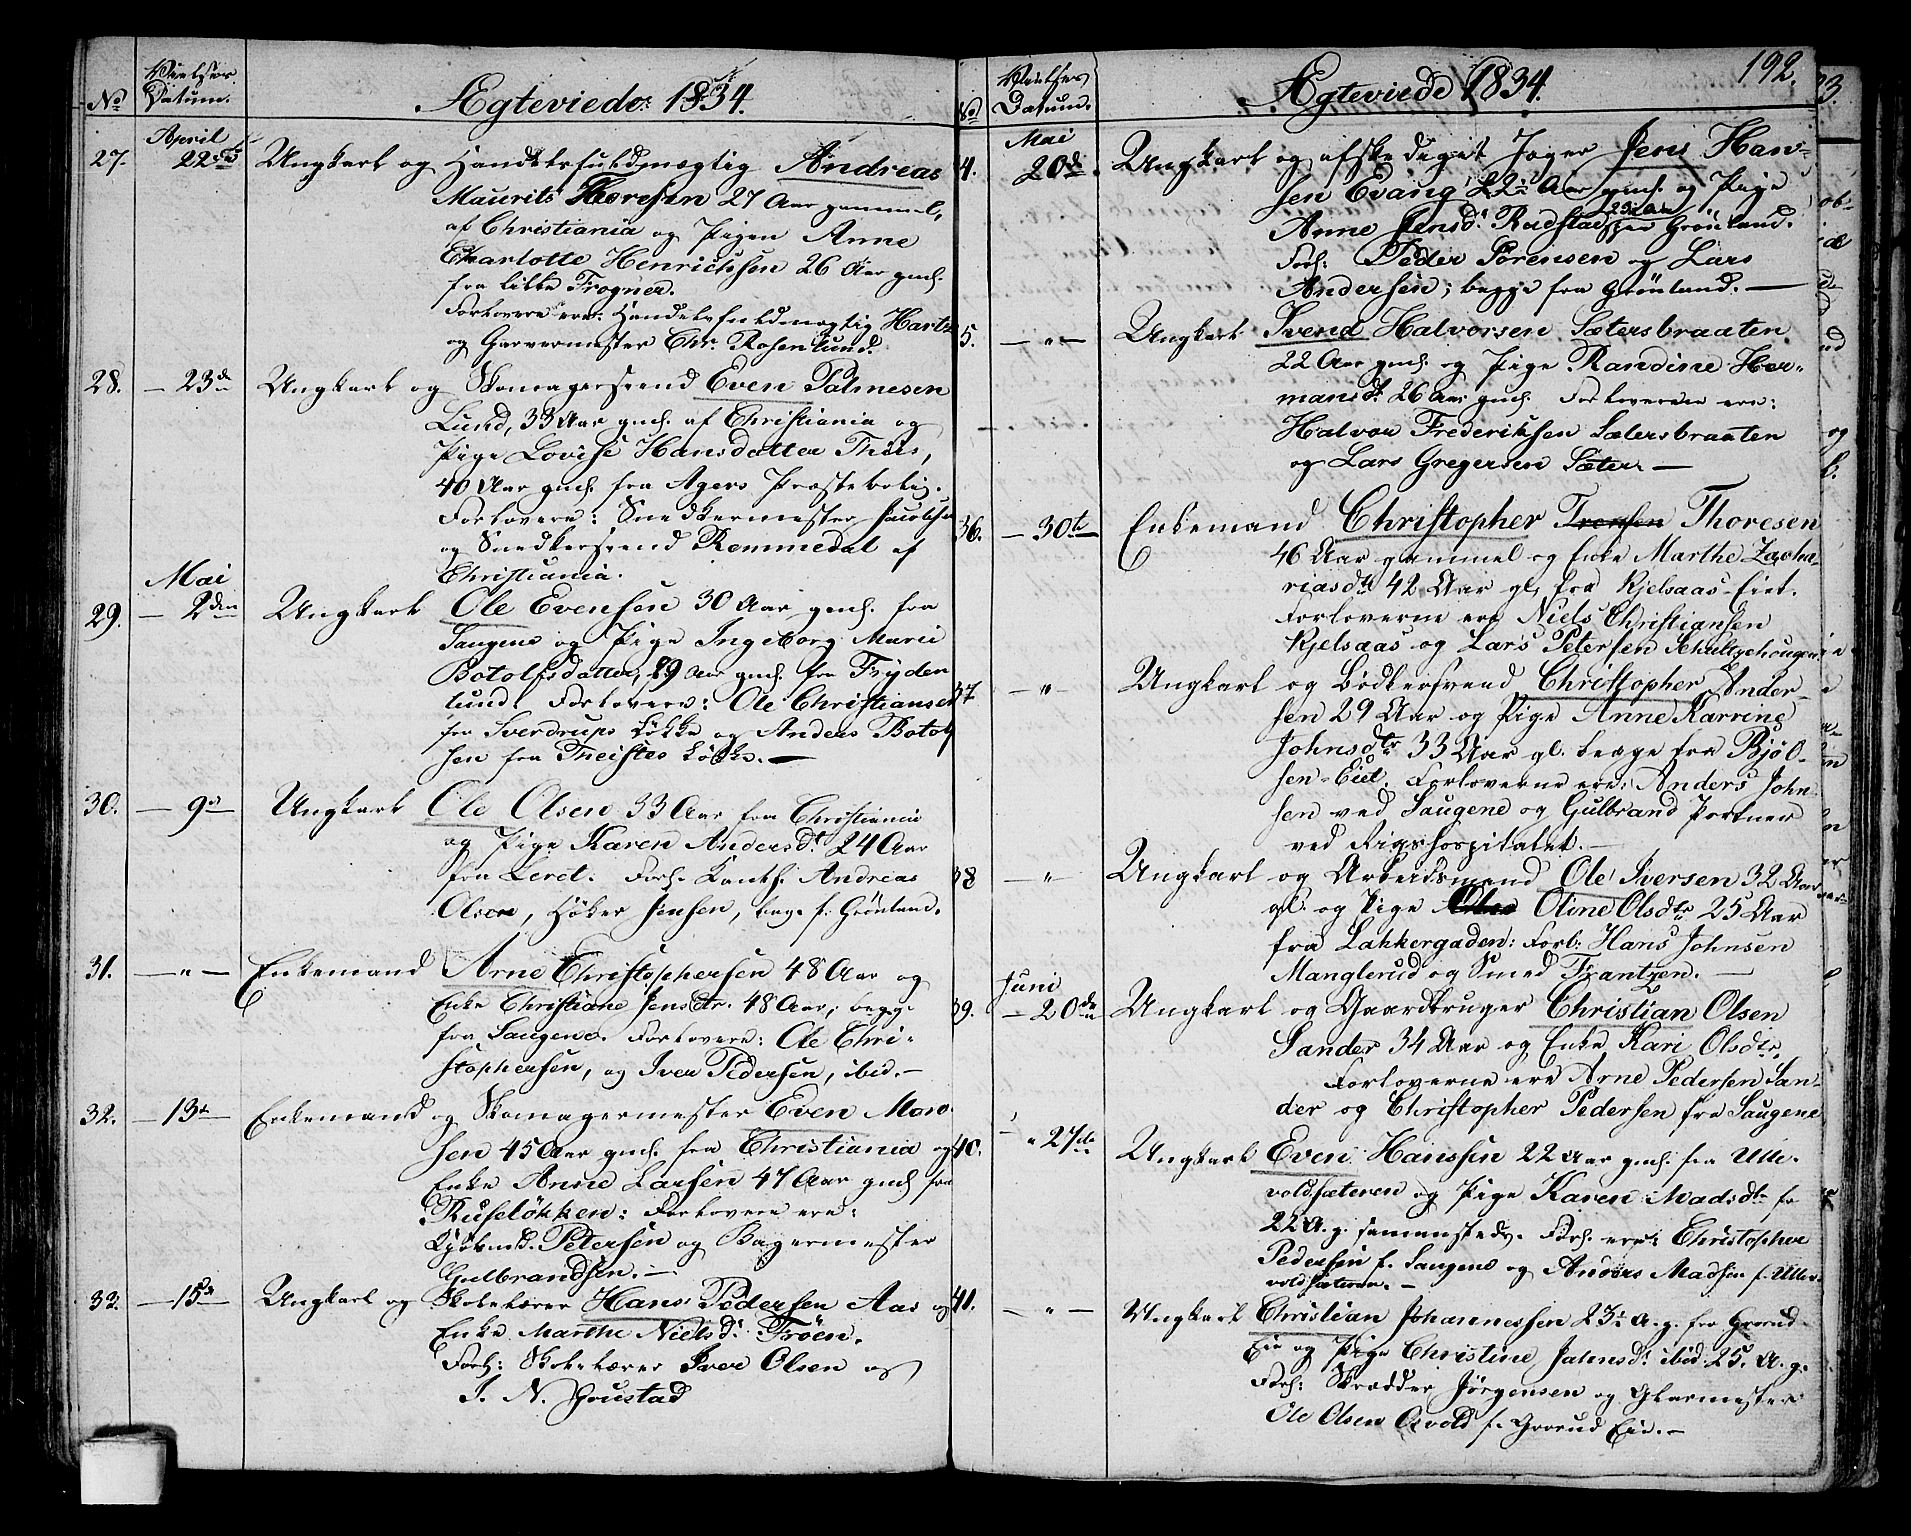 Vielses
No Datum. Ægteviede 1834.
April
27. 22de Ungkarl og Handelsfuldmægtig Andreas
Maurits Thoresen 27 Aar gammel,
af Christiania og Pigen Anne
Charlotte Henrichsen 26 Aar gml.
fra lille Frogner.
Forlovere ere: Handelsfuldmægtig Hartz
og Garvermester Chr. Rosenlund.
28. — 23de Ungkarl og Skomagersvend Even Palmesen
Lund, 33 Aar gml. af Christiania og
Pige Lovise Hansdatter Thiis,
40 Aar gml. fra Agers Præstebolig.
Forlovere: Snedkermester Jacobsen
og Snedkersvend Remmedal af
Christiania.
Mai
29. — 2den Ungkarl Ole Evensen 30 Aar gml. fra
Saugene og Pige Ingeborg Marie
Botolfsdatter, 29 Aar gml. fra Fryden
lund. Forlovere: Ole Christiansen
fra Sverdrups Løkke og Anders Botolf
sen fra Theistes Løkke. —
30. — 9de Ungkarl Ole Olsen 33 Aar fra Christiania
og Pige Karen Andersdr. 24 Aar
fra Leret. Forl. Andreas
Olsen, Høker Jensen, beg. f. Grønland.
31. — " — Enkemand Arne Christophersen 48 Aar og
Enke Christiane Jensdtr. 48 Aar, begge
fra Saugene. Forlovere: Ole Chri-
stophersen, og Iver Pedersen, ibid. —
32. — 13de Enkemand og Skomagermester Even Mon-
sen 45 Aar gml. fra Christiania og
Enke Anne Larsen 47 Aar gml. fra
Ruseløkken: Forlovere ere:
Petersen og Bagermester
Gulbrandsen. —
33. — 15de Ungkarl og Skolelærer Hans Pedersen Aas og
Enke Marthe Nielsdr. Trøen.
Forl: Skolelærer Iver Olsen og
J. N. Goustad
192.
Vielses
No Datum. Ægteviede 1834.
Mai
4. 20de. Ungkarl og afskediget Jæger Jens Han-
sen Evang 22 Aar gml. og Pige
Anne Jensdr. Rudstad 23 Aar per Grönland.
Forl: Peder Sørensen og Lars
Andersen; begge fra Grönland. —
5. — " — Ungkarl Svend Halvorsen Sætersbraaten
22 Aar gml. og Pige Randine Her-
mansdr. 26 Aar gml. Forlovere ere:
Halvor Frederiksen Sætersbraaten
og Lars Gregersen Sæter. —
36. — 30te — Enkemand Christopher Thoresen
46 Aar gammel og Enke Marthe Zacha-
riasdtr 42 Aar gl. fra Kjelsaas-Eiet.
Forloverne ere Niels Christiansen
Kjelsaas og Lars Petersen Schultzehougen
37 — " Ungkarl og Bödkersvend Christopher Ander-
sen 29 Aar og Pige Anne Karrine
Johnsdtr 33 Aar gl. begge fra Bjöl-
sen-Eiet. Forloverne ere: Anders John-
sen ved Saugene og Gulbrand Portner
ved Rigshospitalet. —
38 — " Ungkarl og Arbeidsmand Ole Iversen 32 Aar
gl. og Pige Oline Olsdtr 25 Aar
fra Lakkergaden: Forl: Hans Johnsen
Manglerud og Smed Frantzen. —
Juni
39. — 20de Ungkarl og Gaardbruger Christian Olsen
Sander 34 Aar og Enke Kari Olsdtr,
Forloverne ere Arne Pedersen San-
der og Christopher Pedersen fra Saugene
40. " 27de Ungkarl Even Hanssen 22 Aar gml. fra Ulle-
voldsæteren og Pige Karen Madsdtr
22 A. g. sammesteds. Forl. ere: Christopher
Pedersen f. Saugene og Anders Madsen f. Ulle-
voldsæteren. —
41. — " — Ungkarl Christian Johannessen 23 A. g. fra Grorud-
Eie og Pige Christine Jahnsdr. ibid. 25. A. g.
Forl: Skrædder Jörgensen og Glarmester
Ole Olsen f. Grorud Eie. —